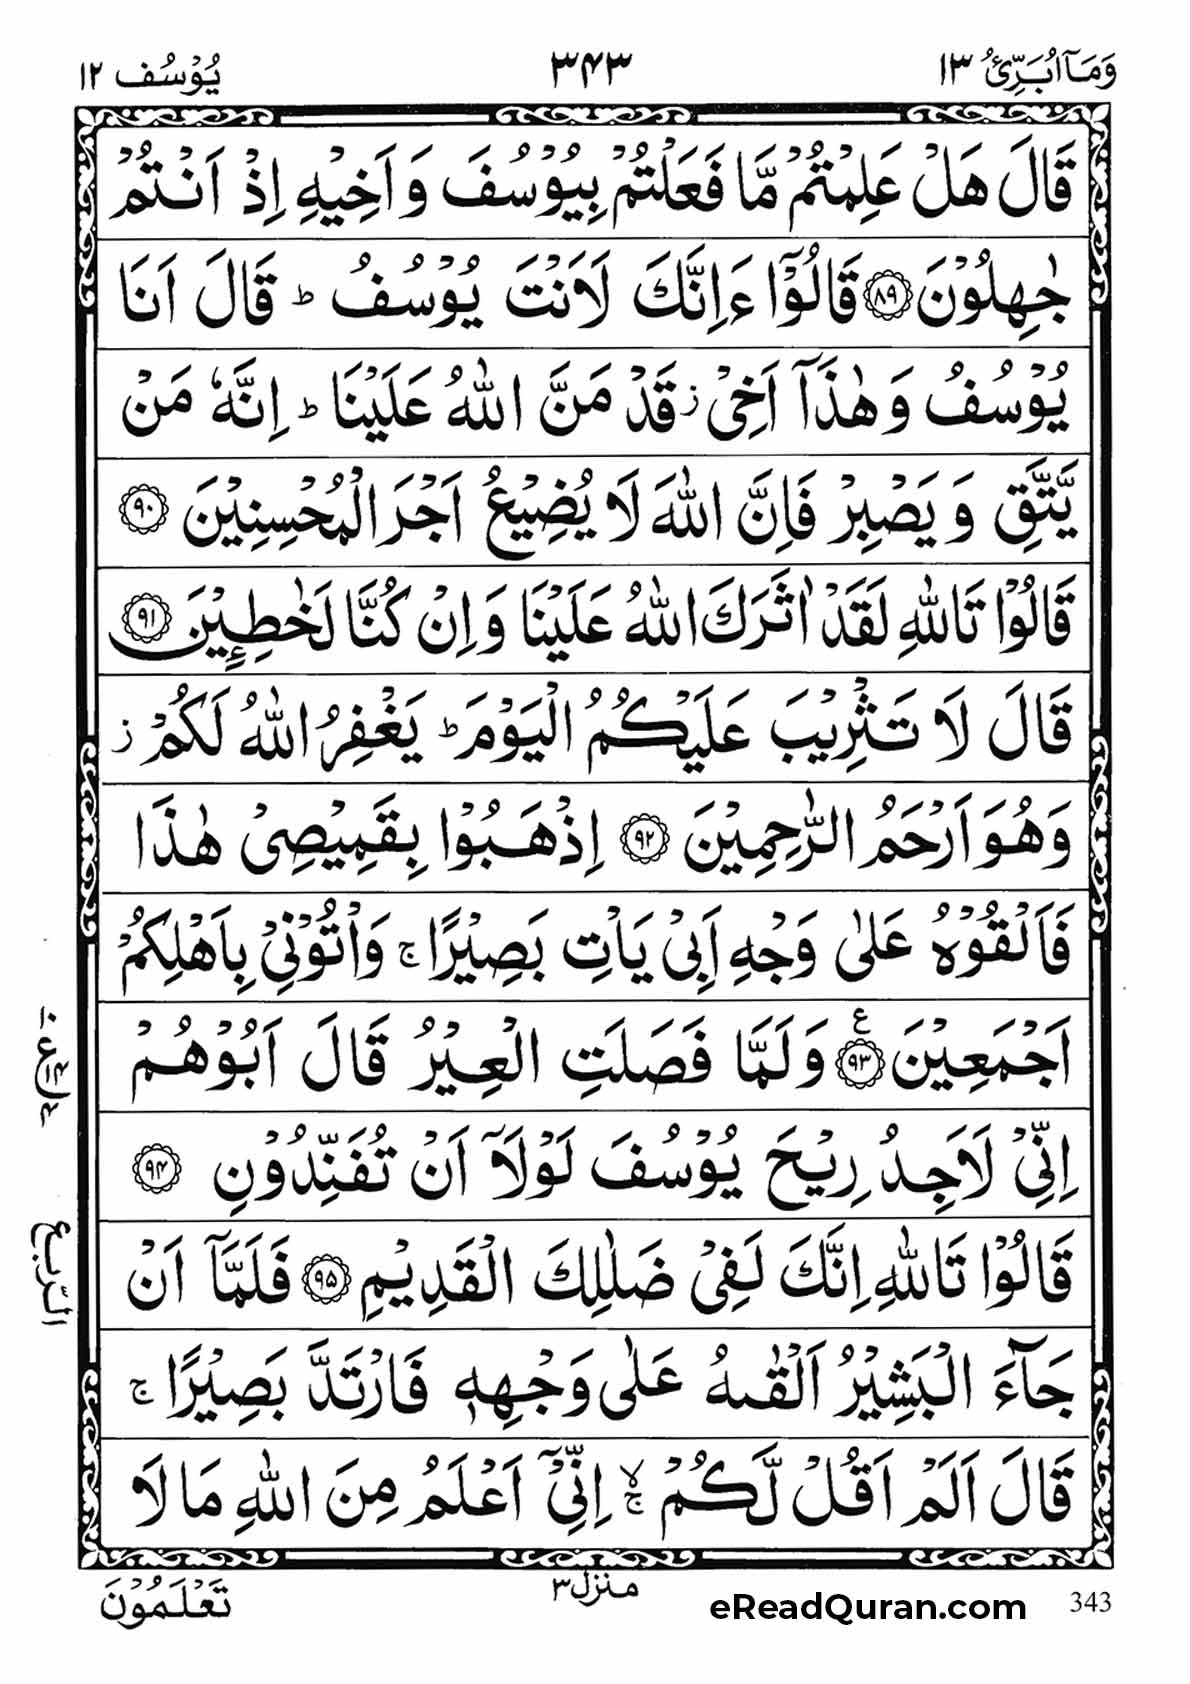 وَمَآ اُبَرِّئُ ١٣
٣٤٣
يُوْسُف ١٢
قَالَ هَلْ عَلِمْتُمْ مَّا فَعَلْتُمْ بِيُوْسُفَ وَ اَخِيْهِ اِذْ اَنْتُمْ
جٰهِلُوْنَ ﴿٨٩﴾ قَالُوْۤا ءَاِنَّكَ لَاَنْتَ يُوْسُفُ ؕ قَالَ اَنَا
يُوْسُفُ وَ هٰذَاۤ اَخِيْ ز قَدْ مَنَّ اللّٰهُ عَلَيْنَا ؕ اِنَّهٗ مَنْ
يَّتَّقِ وَ يَصْبِرْ فَاِنَّ اللّٰهَ لَا يُضِيْعُ اَجْرَ الْمُحْسِنِيْنَ ﴿٩٠﴾
قَالُوْا تَاللّٰهِ لَقَدْ اٰثَرَكَ اللّٰهُ عَلَيْنَا وَ اِنْ كُنَّا لَخٰطِـِٕيْنَ ﴿٩١﴾
قَالَ لَا تَثْرِيْبَ عَلَيْكُمُ الْيَوْمَ ؕ يَغْفِرُ اللّٰهُ لَكُمْ ز
وَهُوَ اَرْحَمُ الرّٰحِمِيْنَ ﴿٩٢﴾ اِذْهَبُوْا بِقَمِيْصِيْ هٰذَا
فَاَلْقُوْهُ عَلٰى وَجْهِ اَبِيْ يَاْتِ بَصِيْرًا ۚ وَاْتُوْنِيْ بِاَهْلِكُمْ
اَجْمَعِيْنَ ﴿٩٣﴾ ع وَلَمَّا فَصَلَتِ الْعِيْرُ قَالَ اَبُوْهُمْ
اِنِّيْ لَاَجِدُ رِيْحَ يُوْسُفَ لَوْلَاۤ اَنْ تُفَنِّدُوْنِ ﴿٩٤﴾
قَالُوْا تَاللّٰهِ اِنَّكَ لَفِيْ ضَلٰلِكَ الْقَدِيْمِ ﴿٩٥﴾ فَلَمَّاۤ اَنْ
جَآءَ الْبَشِيْرُ اَلْقٰىهُ عَلٰى وَجْهِهٖ فَارْتَدَّ بَصِيْرًا ۚ
قَالَ اَلَمْ اَقُلْ لَّكُمْ ۙۚ اِنِّيْۤ اَعْلَمُ مِنَ اللّٰهِ مَا لَا
الرّبع
تَعْلَمُوْنَ
منزل٣
eReadQuran.com
343